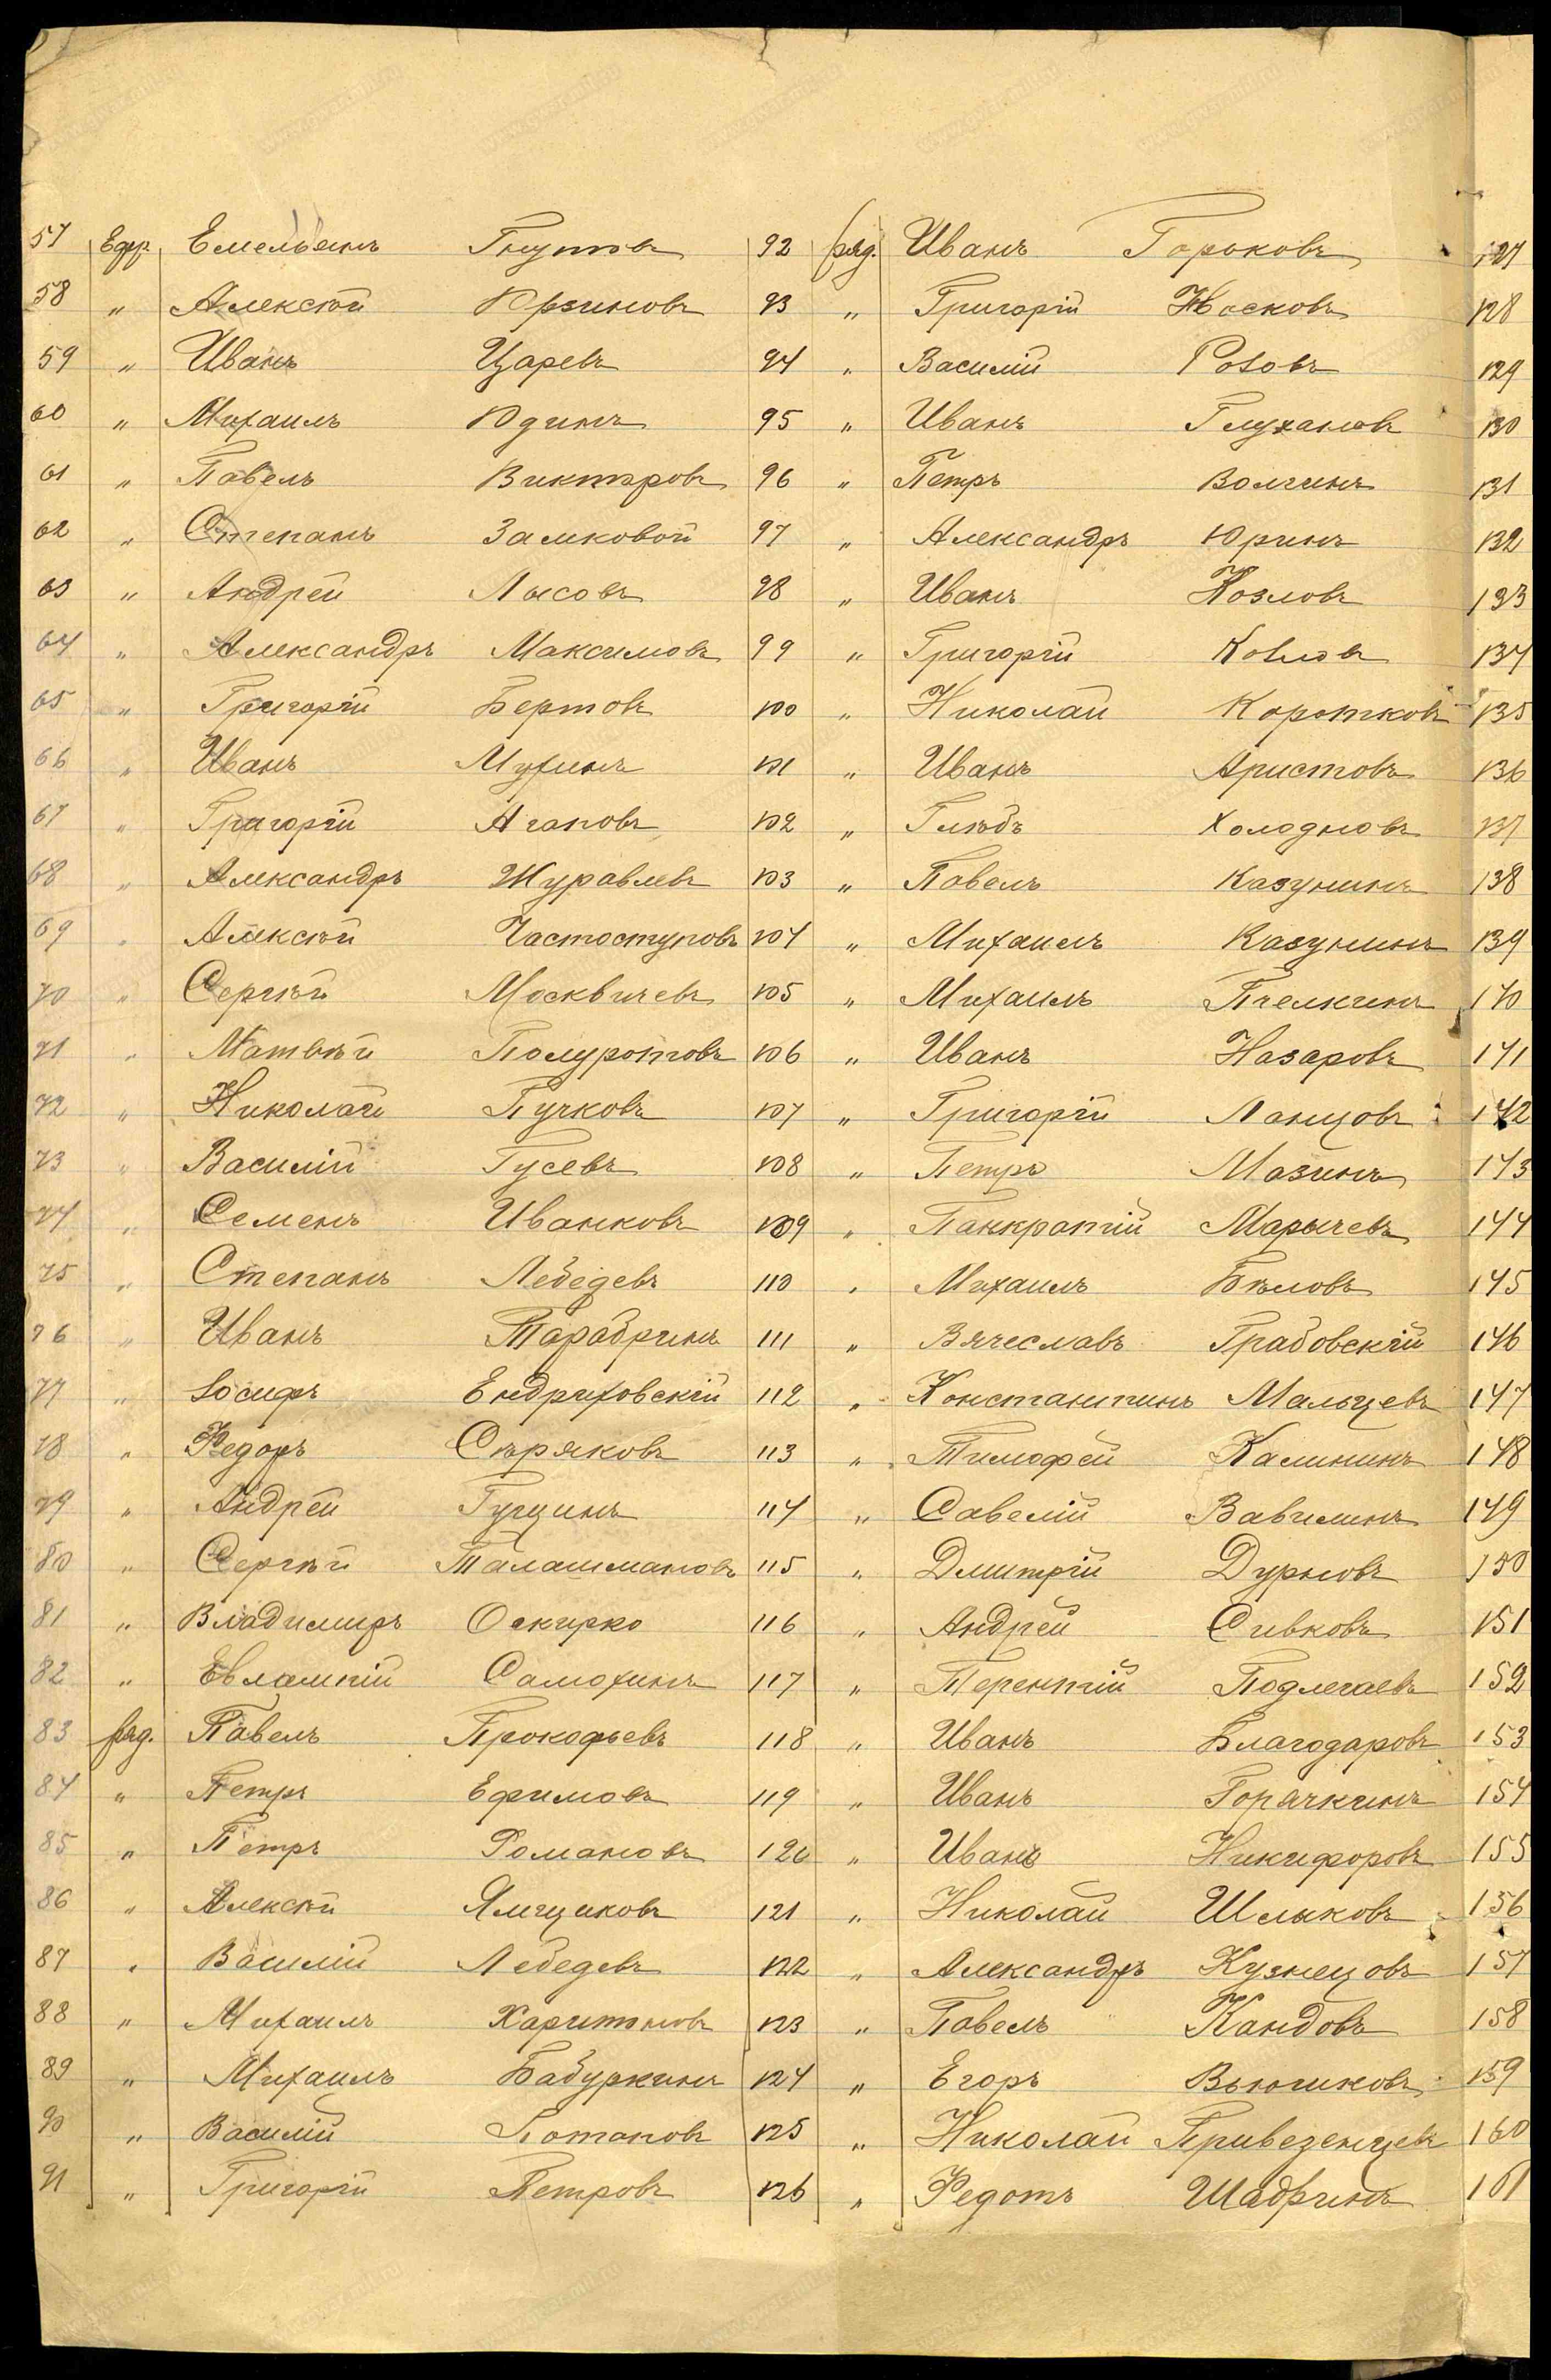 57 Ефр. Емельянъ Гнутовъ
58 " Алексѣй Юрзиновъ
59 " Иванъ Царевъ
60 " Михаилъ Юдинъ
61 " Павелъ Викторовъ
62 " Степанъ Замковой
63 " Андрей Лысовъ
64 " Александръ Максимовъ
65 " Григорій Бертовъ
66 " Иванъ Мухинъ
67 " Григорій Агаповъ
68 " Александръ Журавлевъ
69 " Алексѣй Частоступовъ
70 " Сергѣй Москвичевъ
71 " Матвѣй Полуротовъ
72 " Николай Пучковъ
73 " Василій Гусевъ
74 " Семенъ Иванковъ
75 " Степанъ Лебедевъ
76 " Иванъ Тарабринъ
77 " Іосифъ Ендриховскій
78 " Федоръ Сѣряковъ
79 " Андрей Гущинъ
80 " Сергѣй Талашмановъ
81 " Владимиръ Оскирко
82 " Евлампій Самохинъ
83 ряд. Павелъ Прокофьевъ
84 " Петръ Ефимовъ
85 " Петръ Романовъ
86 " Алексѣй Ямщиковъ
87 " Василій Лебедевъ
88 " Михаилъ Харитоновъ
89 " Михаилъ Бабуркинъ
90 " Василій Потаповъ
91 " Григорій Петровъ
92 ряд. Иванъ Горьковъ
93 " Григорій Носковъ
94 " Василій Розовъ
95 " Иванъ Глухановъ
96 " Петръ Волгинъ
97 " Александръ Юринъ
98 " Иванъ Козловъ
99 " Григорій Козловъ
100 " Николай Коротковъ
101 " Иванъ Аристовъ
102 " Глѣбъ Холодновъ
103 " Павелъ Казунинъ
104 " Михаилъ Казунинъ
105 " Михаилъ Пчелкинъ
106 " Иванъ Назаровъ
107 " Григорій Ланцовъ
108 " Петръ Мазинъ
109 " Панкратій Марычевъ
110 " Михаилъ Бѣловъ
111 " Вячеславъ Грабовскій
112 " Константинъ Мальцевъ
113 " Тимофей Калининъ
114 " Савелій Вавилинъ
115 " Дмитрій Дурновъ
116 " Андрей Сивковъ
117 " Терентій Подлегаевъ
118 " Иванъ Благодаровъ
119 " Иванъ Горячкинъ
120 " Иванъ Никифоровъ
121 " Николай Шлыковъ
122 " Александръ Кузнецовъ
123 " Павелъ Кандовъ
124 " Егоръ Вьюгиковъ
125 " Николай Привезенцевъ
126 " Федотъ Шадринъ
127
128
129
130
131
132
133
134
135
136
137
138
139
140
141
142
143
144
145
146
147
148
149
150
151
152
153
154
155
156
157
158
159
160
161